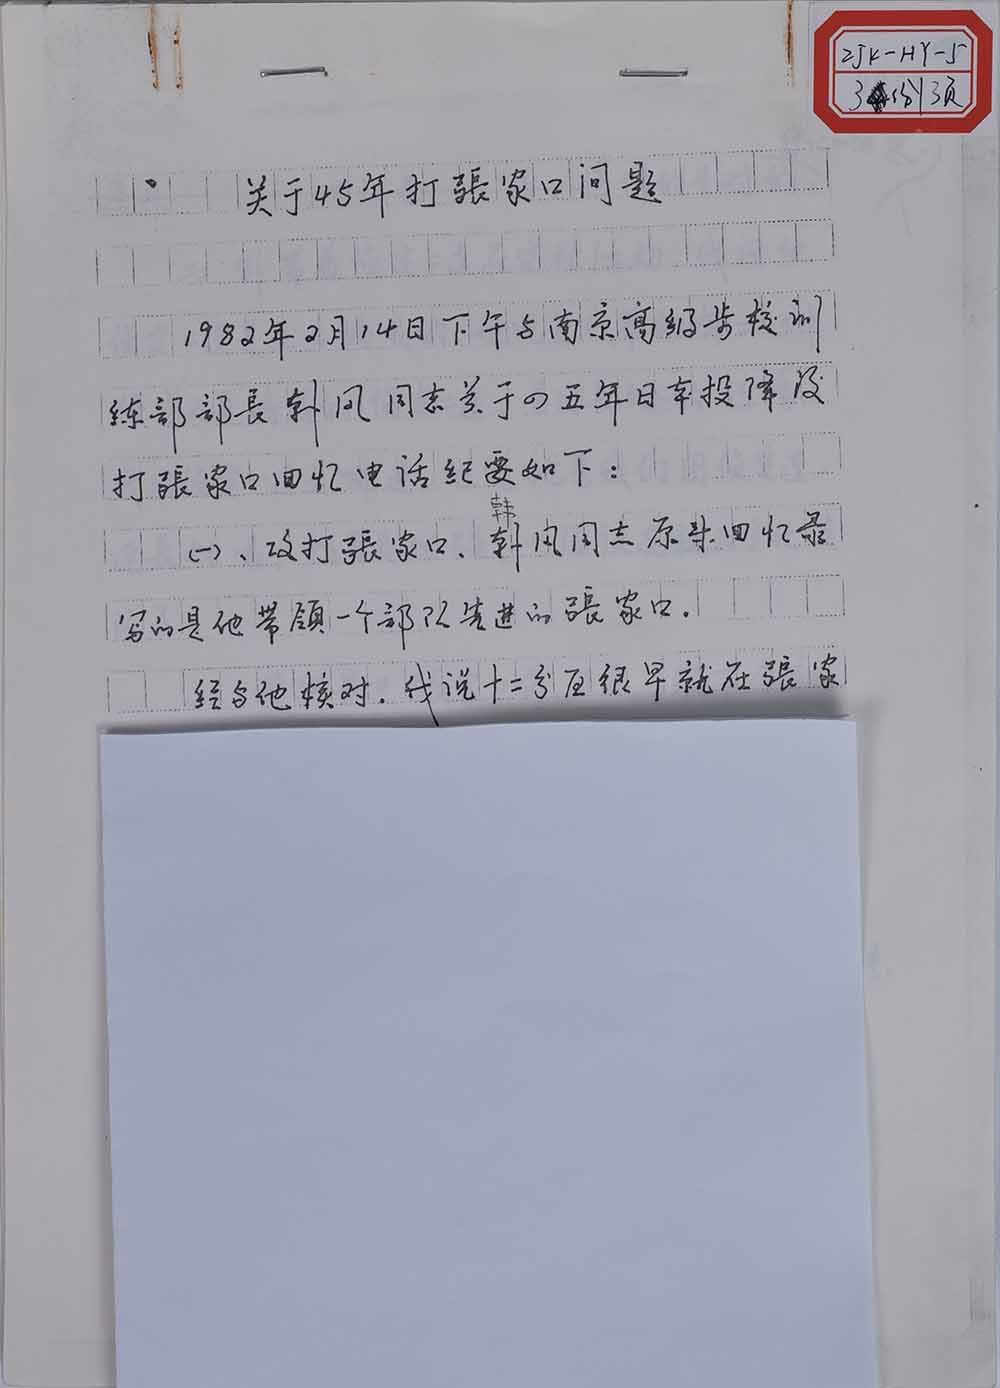 ZJK-HY-5
3份13页
关于45年打張家口问题
1982年2月14日下午与南京高级步校训
练部部長韩风同志关于四五年日本投降及
打張家口回忆电话纪要如下：
韩
(一)、攻打張家口、韩风同志原来回忆录
写的是他带领一个部队先进的張家口.
经与他核对.我说十二分区很早就在張家